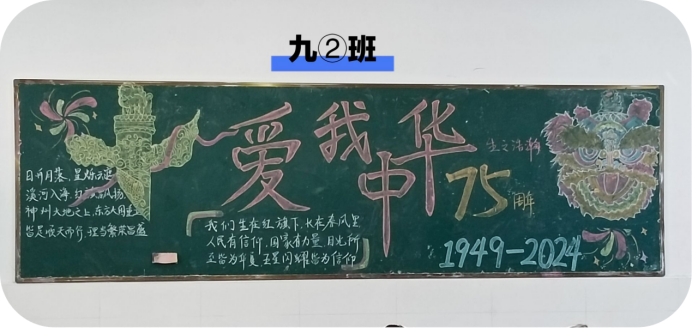 九②班
爱我中华
75周年
1949-2024
生之浩瀚
日升月落,星
溪河入海,
神州大地之上,东方
皆是顺天而行,理当繁荣昌盛
我们生在红旗下,长在春风里
人民有信仰,国家有力量,目光所
至皆为华夏,五星闪耀皆为信仰